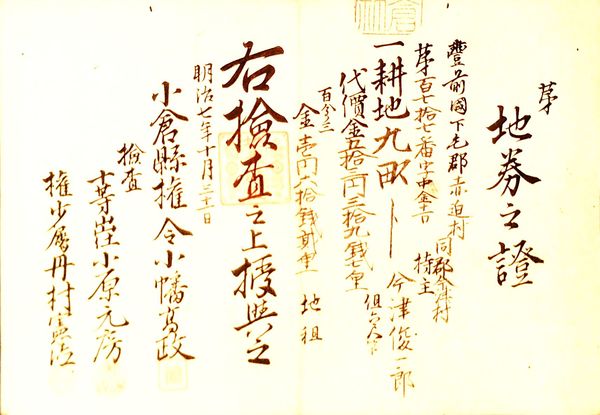 第
地券之證
豊前國下毛郡赤迫村
第百七拾七番字中
同郡今津村
持主
今津俊一郎
一耕地九畝
代價金五拾二円三拾九銭七厘
百分ノ三
金壱円
地租
右撿査之上授與之
明治七年十月三十一日
小倉縣権令小幡高政
撿査
十等出仕小原元房
権少属丹村